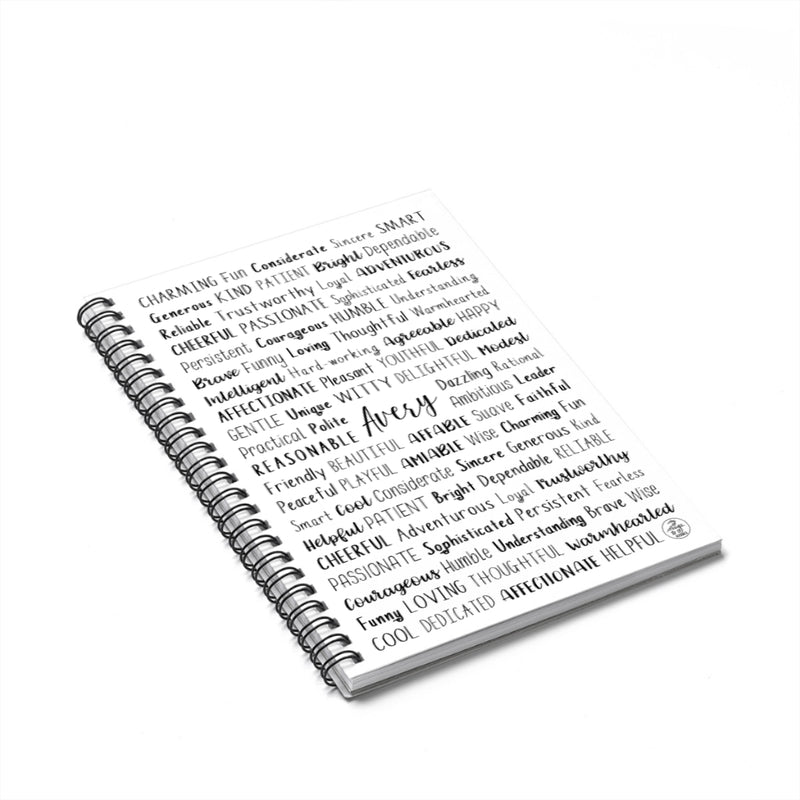 CHARMING Fun Considerate Sincere SMART
Generous KIND PATIENT Bright Dependable
Reliable Trustworthy Loyal ADVENTUROUS
CHEERFUL PASSIONATE Sophisticated Fearless
Persistent Courageous HUMBLE Understanding
Brave Funny Loving Thoughtful Warmhearted
Intelligent Hard-working Agreeable HAPPY
AFFECTIONATE Pleasant YOUTHFUL Dedicated
GENTLE Unique WITTY DELIGHTFUL Modest
Practical Polite Avery Dazzling Rational
REASONABLE Ambitious Leader
Friendly BEAUTIFUL AFFABLE Suave Faithful
Peaceful PLAYFUL AMIABLE Wise Charming Fun
Smart Cool Considerate Sincere Generous Kind
Helpful PATIENT Bright Dependable RELIABLE
CHEERFUL Adventurous Loyal Trustworthy
PASSIONATE Sophisticated Persistent Fearless
Courageous Humble Understanding Brave Wise
Funny LOVING THOUGHTFUL Warmhearted
COOL DEDICATED AFFECTIONATE HELPFUL